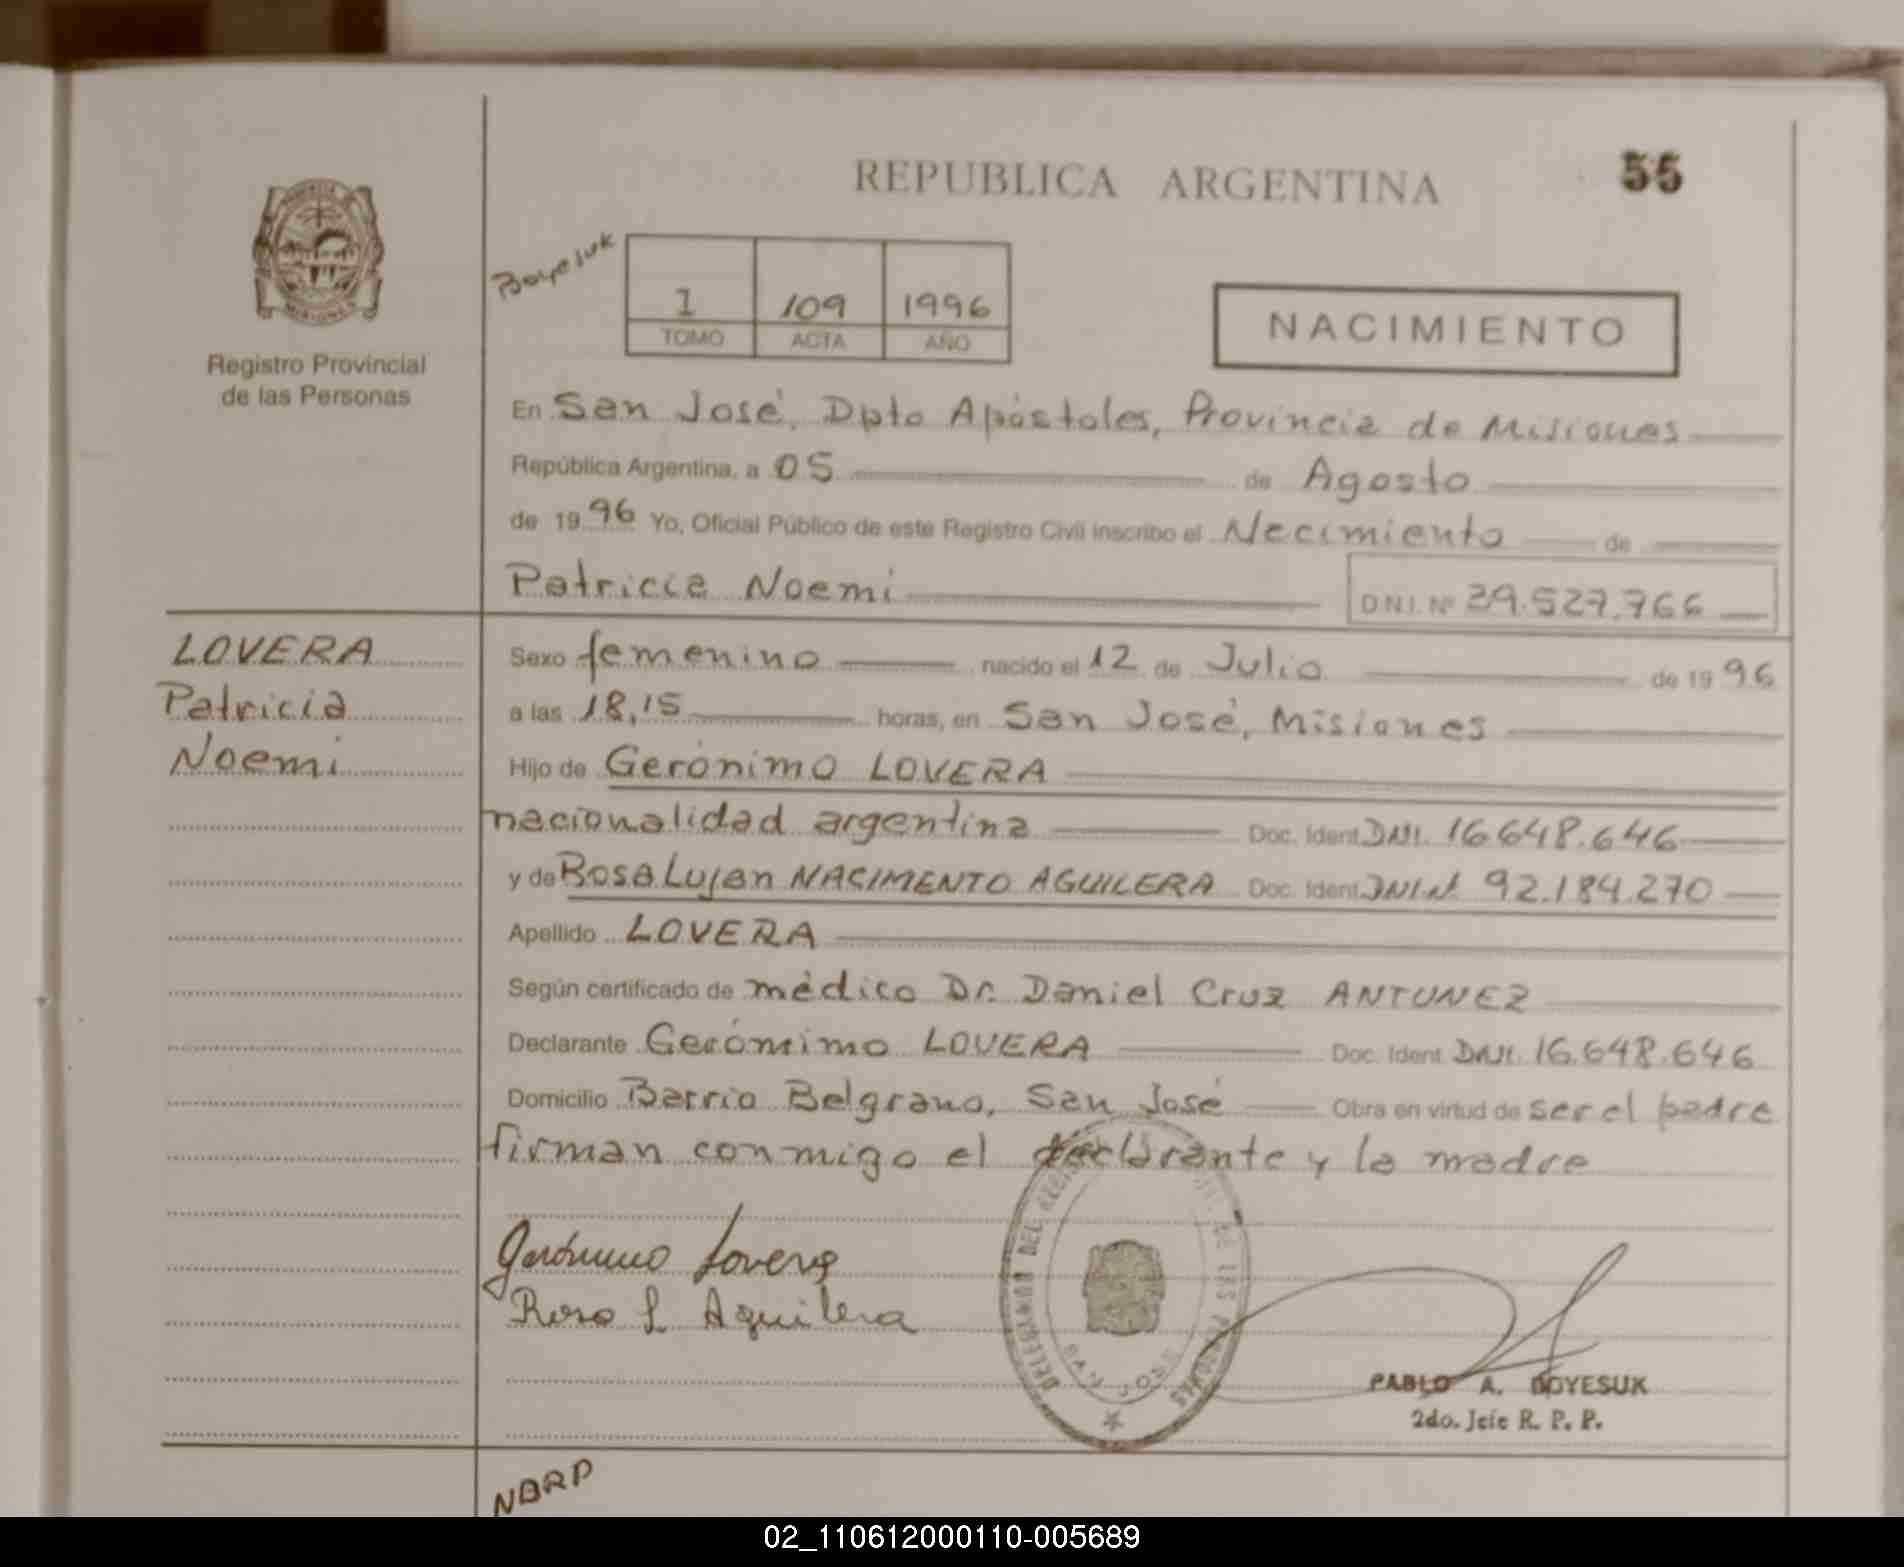 REPUBLICA ARGENTINA
55
Registro Provincial
de las Personas
Boyesuk
1 109 1996
TOMO ACTA AÑO
NACIMIENTO
En San José, Dpto Apóstoles, Provincia de Misiones
República Argentina, a 05 de Agosto
de 19 96 Yo, Oficial Público de este Registro Civil inscribo el Nacimiento de
Patricia Noemi
D.N.I. Nº 39.527.766
LOVERA
Patricia
Noemi
Sexo femenino nacido el 12 de Julio de 19 96
a las 18,15 horas, en San José, Misiones
Hijo de Gerónimo LOVERA
nacionalidad argentina Doc. Ident. DNI. 16.648.646
y de Rosa Lujan NACIMENTO AGUILERA Doc. Ident. DNI.N. 92.184.270
Apellido LOVERA
Según certificado de médico Dr. Daniel Cruz ANTUNEZ
Declarante Gerónimo LOVERA Doc. Ident. DNI. 16.648.646
Domicilio Barrio Belgrano, San José Obra en virtud de ser el padre
firman conmigo el declarante y la madre
Gerónimo Lovera
Rosa L Aguilera
SAN JOSE
PABLO A. BOYESUK
2do. Jefe R. P. P.
NBRP
02_110612000110-005689